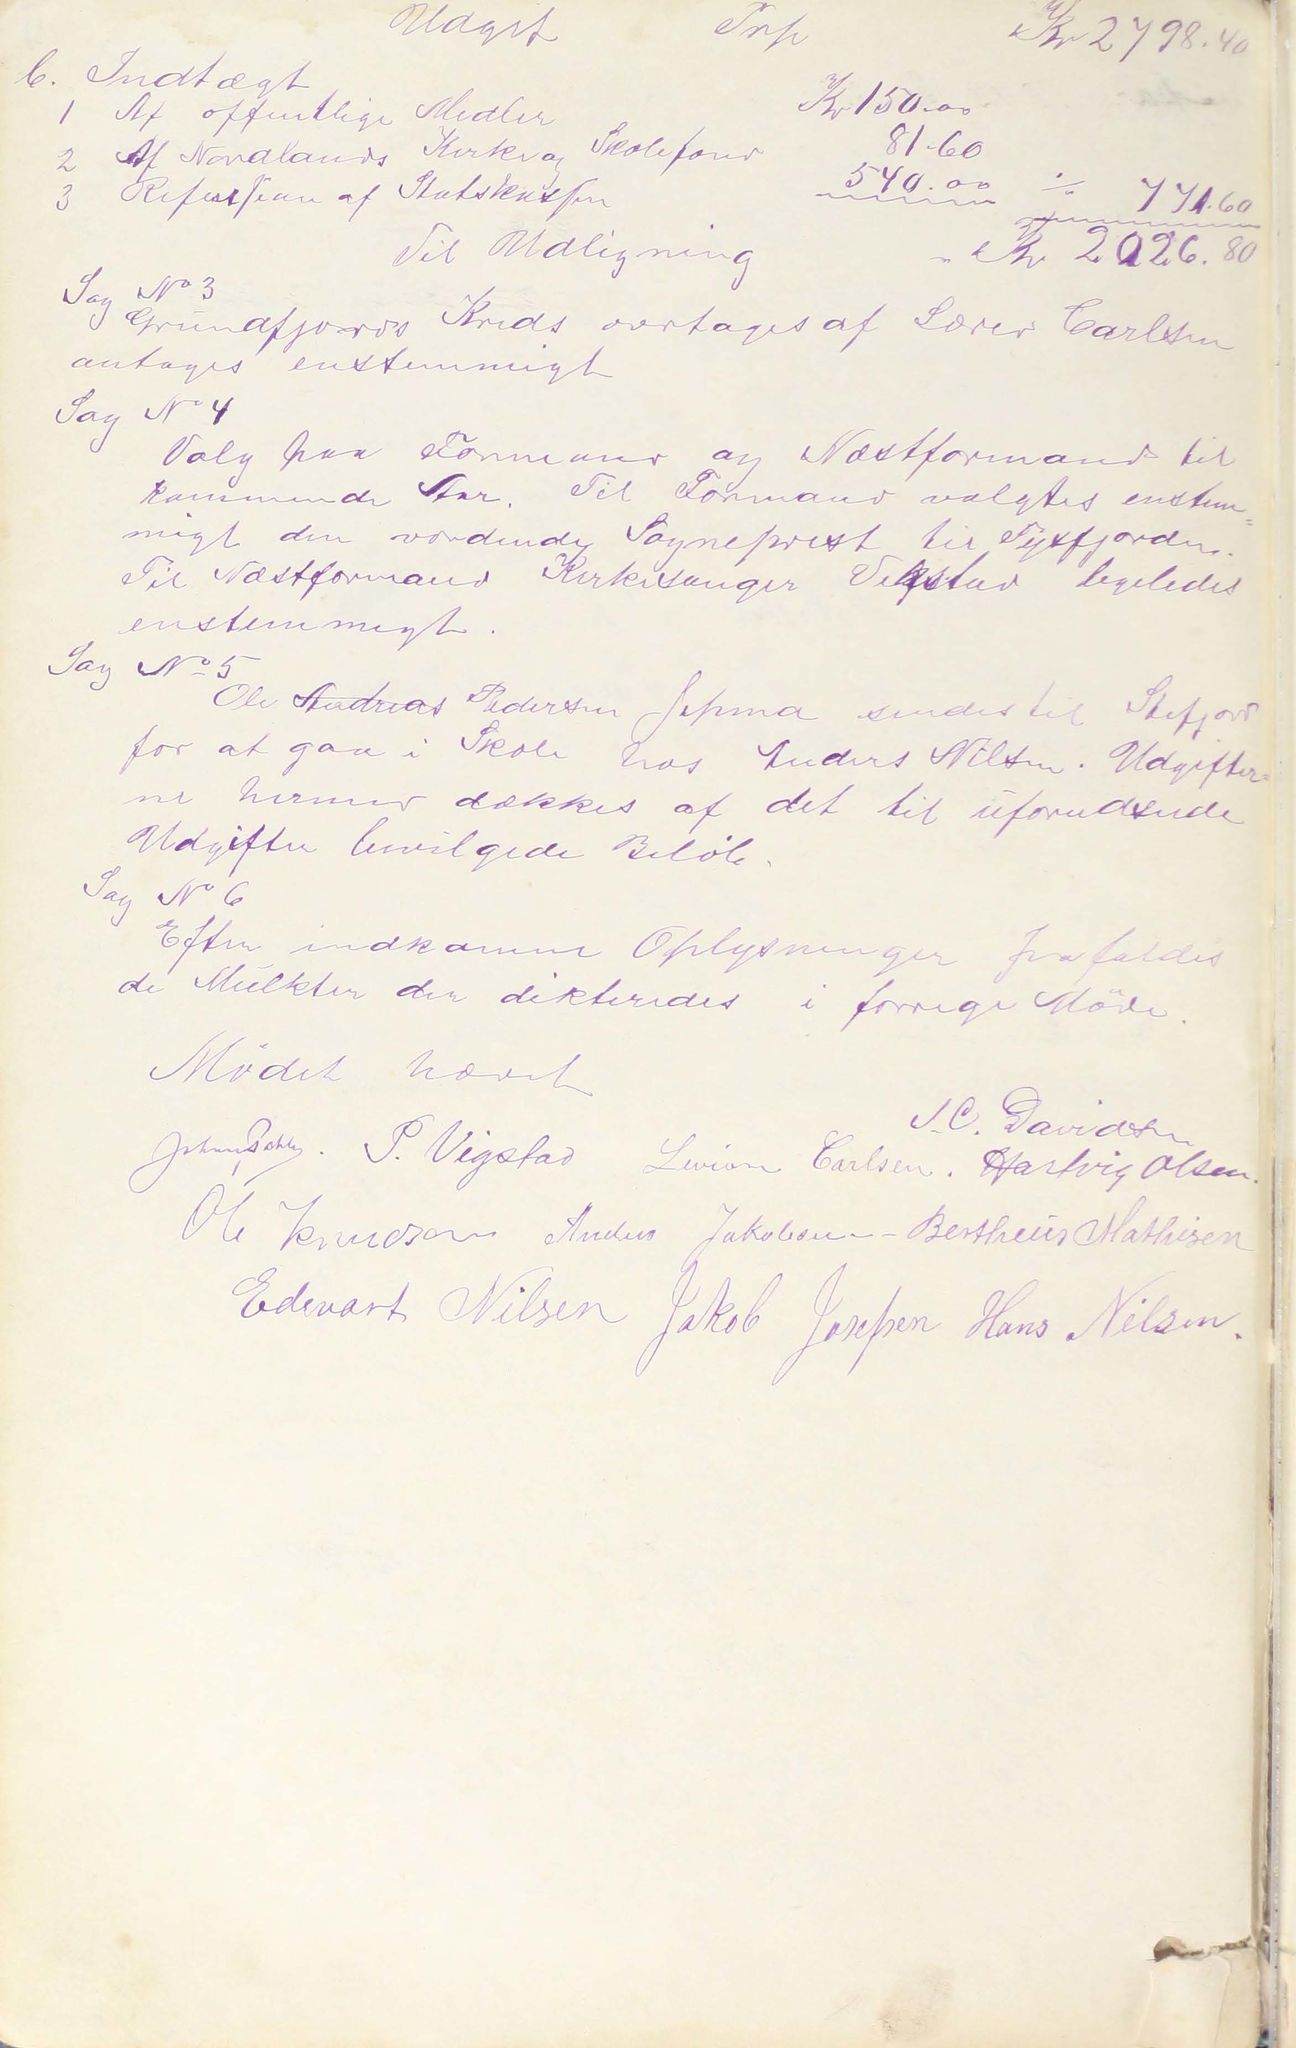 Udgift Trsp Kr 2798.40
C. Indtægt
1 Af offentlige Midler Kr 150.00
2 Af Nordlands Kirke og Skolefond 81.60
3 Refusion af Statskassen 540.00 ./. 771.60
Til Udligning - Kr 2026.80
Sag No 3
Grundfjords Kreds overtages af Lærer Carlsen
antages enstemmigt
Sag No 4
Valg paa Formand og Næstformand til
kommende Aar. Til Formand valgtes enstem=
migt den vordende Sogneprest til Tysfjorden.
Til Næstformand Kirkesanger Vigstad ligeledes
enstemmigt.
Sag No 5
Ole Andreas Pedersen Jepma sendes til Stefjord
for at gaa i Skole hos Anders Nilsen. Udgifter=
ne hermed dækkes af det til uforudseede
Udgifter bevilgede Beløb.
Sag No 6
Efter indkomne Oplysninger frafaldes
de Mulkter der dikteredes i forrige Møde.
Mødet hævet
J. C. Davidsen
P. Vigstad Carlsen. Hartvig Olsen.
Ole Knudsen Anders Jakobsen - Bertheus Mathisen
Edevart Nilsen Jakob Josepsen Hans Nilsen.